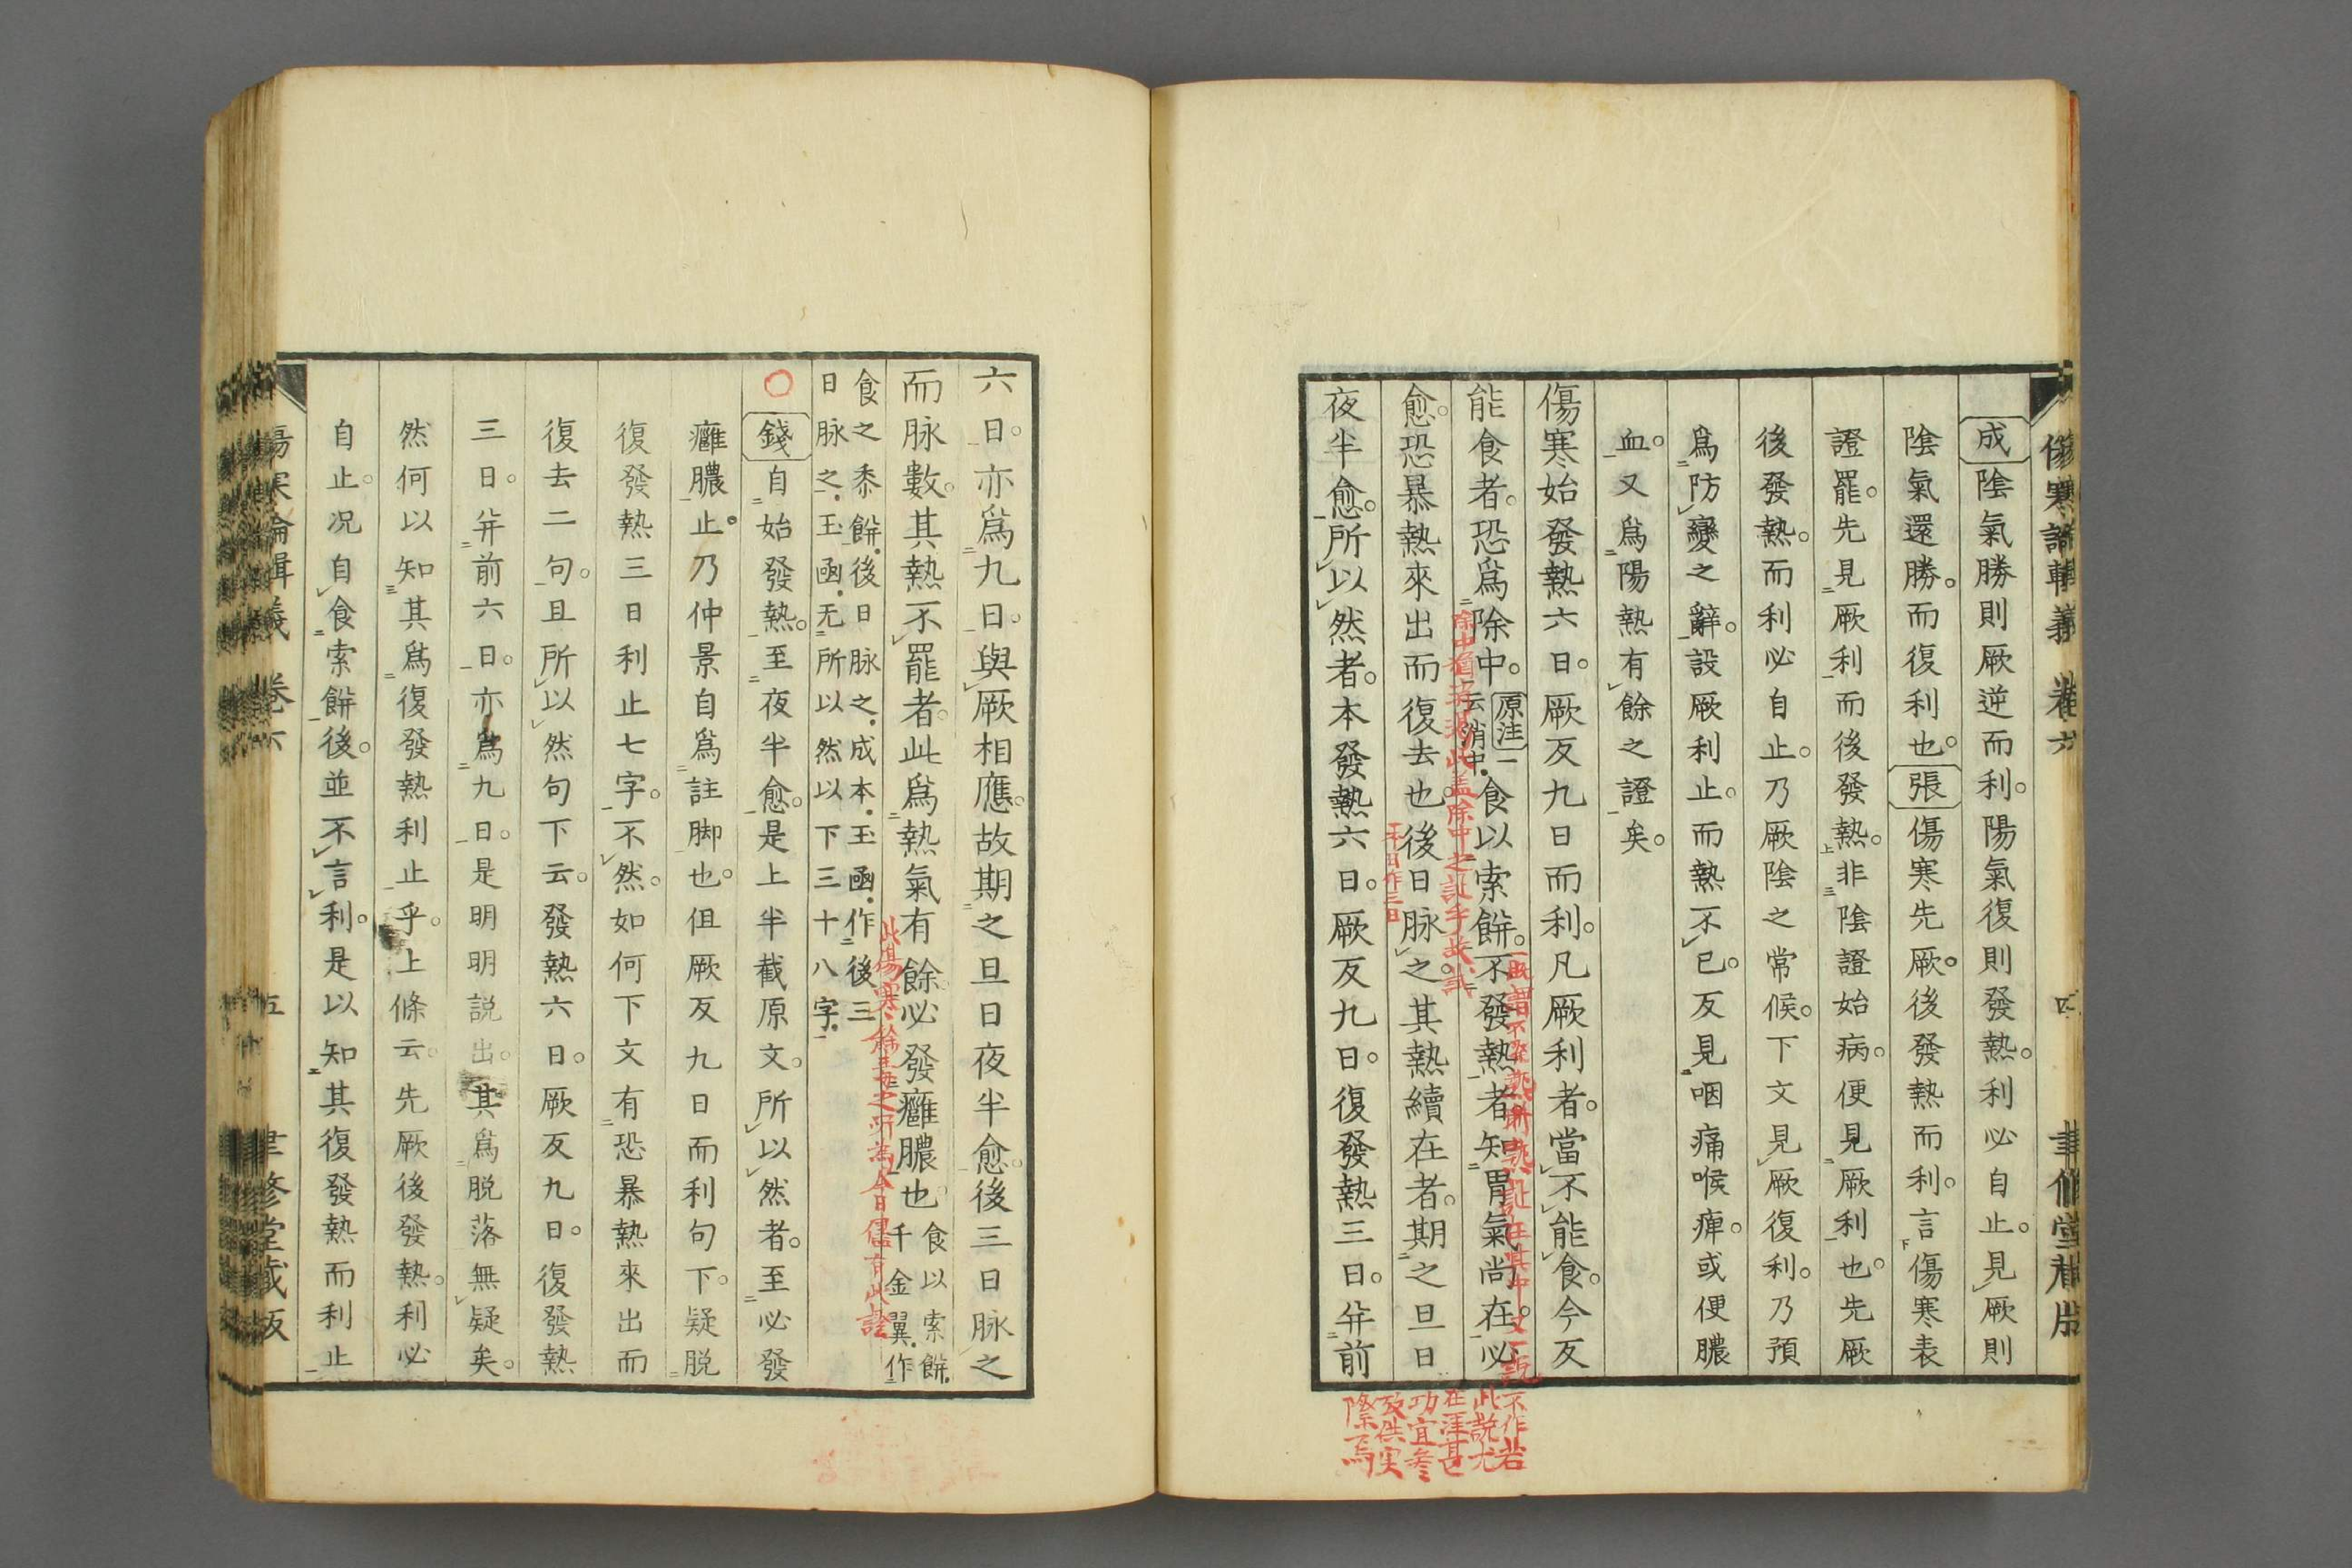 成陰氣勝則厥逆而利。陽氣復則發熱。利必自止。見厥則
陰氣還勝。而復利也。張傷寒先厥。後發熱而利。言傷寒表
證罷。先見厥利而後發熱。非陰證始病。便見厥利也。先厥
後發熱。而利必自止。乃厥陰之常候。下文見厥復利。乃預
爲防變之辭。設厥利止。而熱不已。反見咽痛喉痺。或便膿
血。又爲陽熱有餘之證矣。
傷寒始發熱六日。厥反九日而利。凡厥利者。當不能食。今反
能食者。恐爲除中。原注一云消中。食以索餠。不發熱者。知胃氣尚在。必
愈。恐暴熱來出而復去也。後日脉之。其熱續在者。期之旦日
夜半愈。所以然者。本發熱六日。厥反九日。復發熱三日。幷前
六日。亦爲九日。與厥相應。故期之旦日夜半愈。後三日脉之
而脉數。其熱不罷者。此爲熱氣有餘。必發癰膿也。食以索餠。千金翼。作
食之黍餠。後日脉之。成本。玉函。作後三
日脉之。玉函。无所以然以下三十八字。
錢自始發熱。至夜半愈。是上半截原文。所以然者。至必發
癰膿止。乃仲景自爲註脚也。但厥反九日而利句下。疑脱
復發熱三日利止七字。不然。如何下文有恐暴熱來出而
復去二句。且所以然句下云。發熱六日。厥反九日。復發熱
三日。幷前六日。亦爲九日。是明明説出。其爲脱落無疑矣。
然何以知其爲復發熱利止乎。上條云。先厥後發熱。利必
自止。况自食索餠後。並不言利。是以知其復發熱而利止
此説尤
在涇甚
功宜参
攷供実
際焉